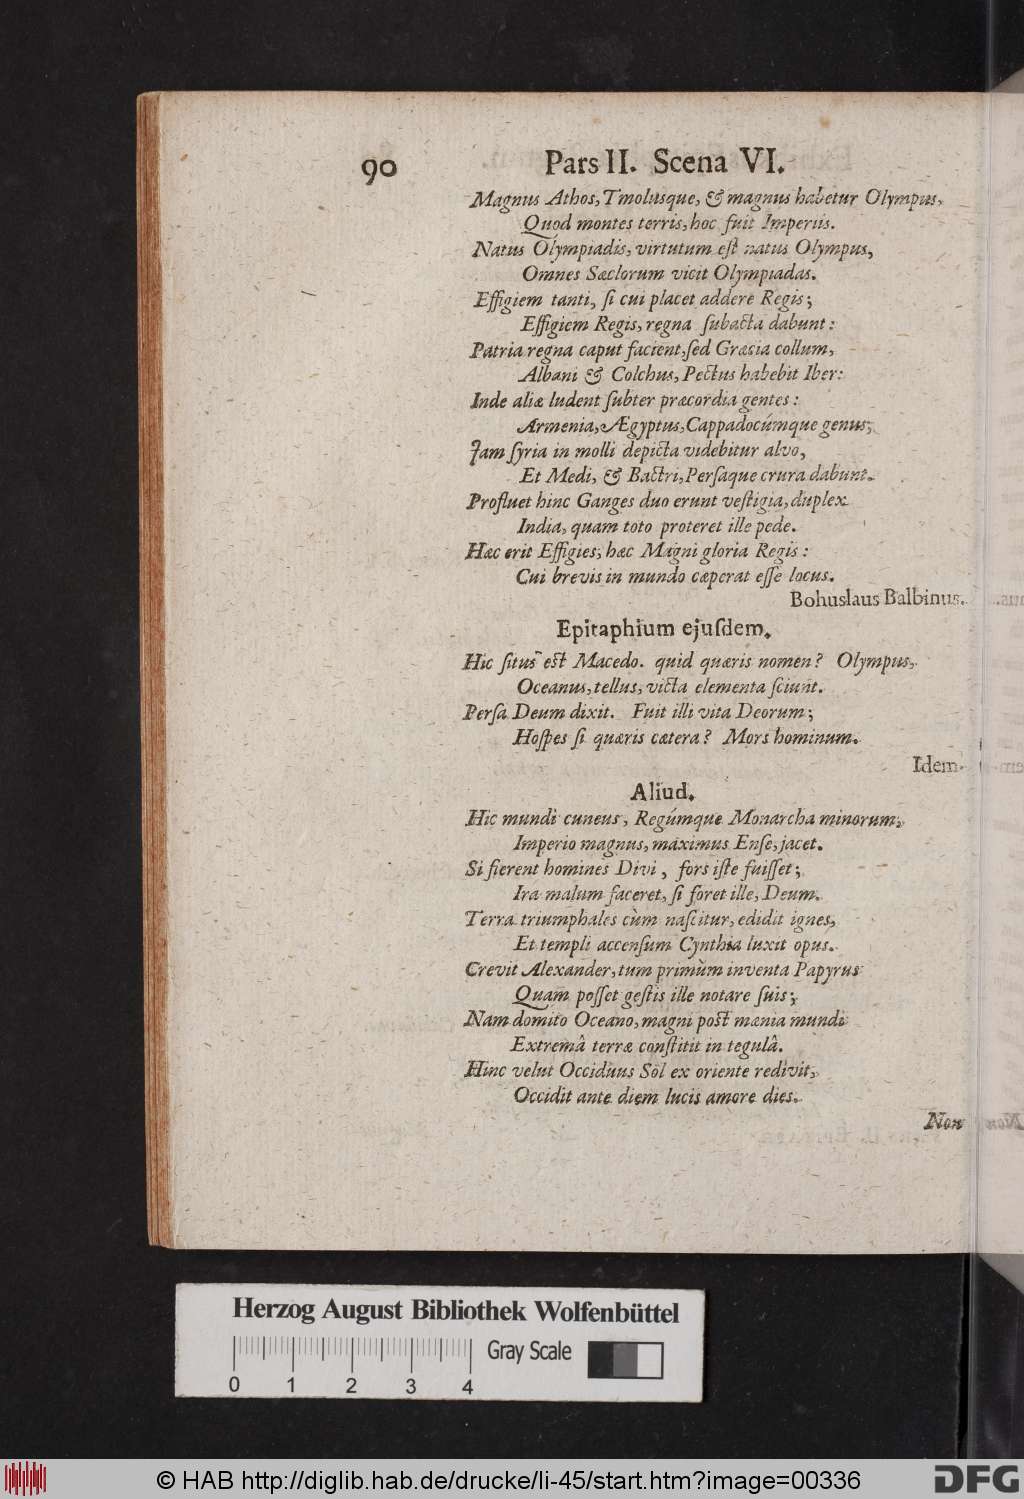 90 Pars II. Scena VI.
Magnus Athos, Tmolusque, & magnus habetur Olympus,
Quod montes terris, hoc fuit Imperiis.
Natus Olympiadis, virtutum eſt natus Olympus,
Omnes Sæclorum vicit Olympiadas.
Effigiem tanti, ſi cui placet addere Regis;
Effigiem Regis, regna ſubacta dabunt:
Patria regna caput facient, ſed Græcia collum,
Albani & Colchus, Pectus habebit Iber:
Inde aliæ ludent ſubter præcordia gentes:
Armenia, Ægyptus, Cappadocúmque genus;
Jam ſyria in molli depicta videbitur alvo,
Et Medi, & Bactri, Perſaque crura dabunt.
Profluet hinc Ganges duo erunt veſtigia, duplex
India, quam toto proteret ille pede.
Hæc erit Effigies, hæc Magni gloria Regis:
Cui brevis in mundo cæperat eſſe locus.
Bohuslaus Balbinus.
Epitaphium ejuſdem.
Hic ſitus eſt Macedo. quid quæris nomen? Olympus,
Oceanus, tellus, victa elementa ſciunt.
Perſa Deum dixit. Fuit illi vita Deorum;
Hoſpes ſi quæris cætera? Mors hominum.
Idem.
Aliud.
Hic mundi cuneus, Regúmque Monarcha minorum,
Imperio magnus, maximus Enſe, jacet.
Si fierent homines Divi, fors iſte fuiſſet;
Ira malum faceret, ſi foret ille, Deum.
Terra triumphales cùm naſcitur, edidit ignes,
Et templi accenſum Cynthia luxit opus.
Crevit Alexander, tum primùm inventa Papyrus
Quam poſſet geſtis ille notare ſuis;
Nam domito Oceano, magni poſt mænia mundi
Extremâ terræ conſtitit in tegulâ.
Hinc velut Occiduus Sol ex oriente redivit,
Occidit ante diem lucis amore dies.
Non
Herzog August Bibliothek Wolfenbüttel
Gray Scale
0 1 2 3 4
© HAB http://diglib.hab.de/drucke/li-45/start.htm?image=00336
DFG